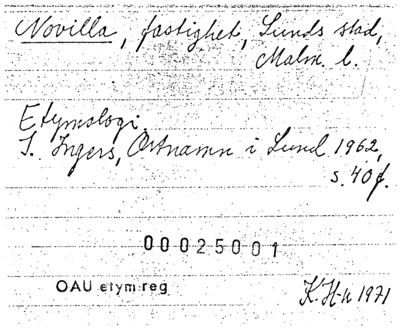 Novilla, fastighet, Lunds stad,
Malm. l.
Etymologi
I. Ingers, Ortnamn i Lund 1962,
s. 40 f.
00025001
OAU etym reg
K. H-n 1971